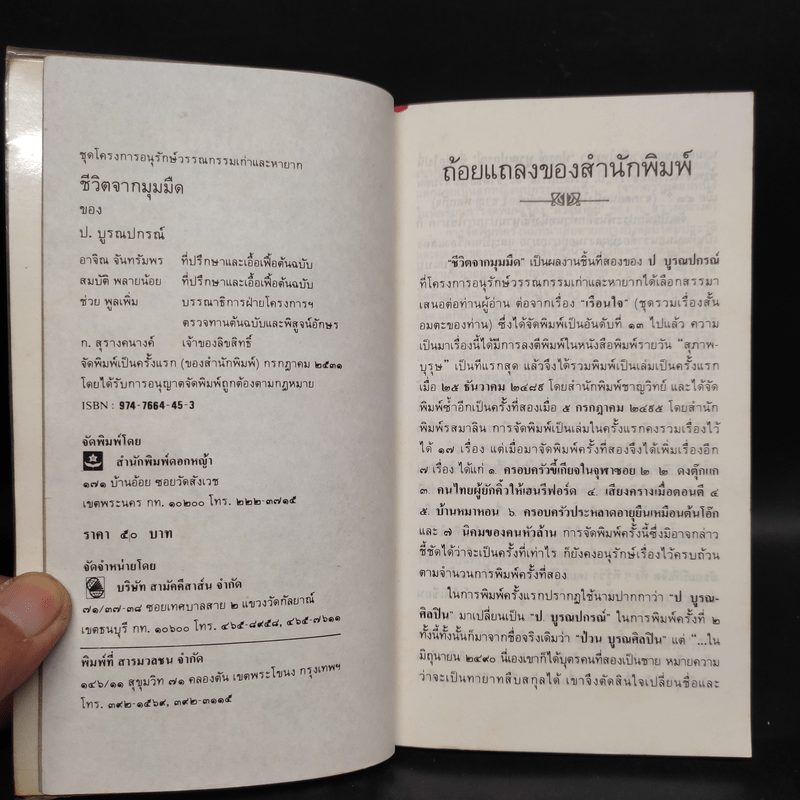 ชุดโครงการอนุรักษ์วรรณกรรมเก่าและหายาก
ชีวิตจากมุมมืด
ของ
ป. บูรณปกรณ์
อาจิณ จันทรัมพร ที่ปรึกษาและเอื้อเฟื้อต้นฉบับ
สมบัติ พลายน้อย ที่ปรึกษาและเอื้อเฟื้อต้นฉบับ
ช่วย พูลเพิ่ม บรรณาธิการฝ่ายโครงการฯ
ตรวจทานต้นฉบับและพิสูจน์อักษร
ก. สุรางคนางค์ เจ้าของลิขสิทธิ์
จัดพิมพ์เป็นครั้งแรก (ของสำนักพิมพ์) กรกฎาคม ๒๕๓๑
โดยได้รับการอนุญาตจัดพิมพ์ถูกต้องตามกฎหมาย
ISBN : 974-7664-45-3
จัดพิมพ์โดย
สำนักพิมพ์ดอกหญ้า
๑๗๑ บ้านอ้อย ซอยวัดสังเวช
เขตพระนคร กท. ๑๐๒๐๐ โทร. ๒๒๒-๓๗๑๕
ราคา ๕๐ บาท
จัดจำหน่ายโดย
บริษัท สามัคคีสาส์น จำกัด
๗๑/๓๗-๓๘ ซอยเทศบาลสาย ๒ แขวงวัดกัลยาณ์
เขตธนบุรี กท. ๑๐๖๐๐ โทร. ๔๖๕-๘๙๕๘, ๔๖๕-๗๖๑๑
พิมพ์ที่ สารมวลชน จำกัด
๑๔๖/๑๑ สุขุมวิท ๗๑ คลองตัน เขตพระโขนง กรุงเทพฯ
โทร. ๓๙๒-๑๕๖๙, ๓๙๒-๓๑๑๕
ถ้อยแถลงของสำนักพิมพ์
"ชีวิตจากมุมมืด" เป็นผลงานชิ้นที่สองของ ป บูรณปกรณ์
ที่โครงการอนุรักษ์วรรณกรรมเก่าและหายากได้เลือกสรรมา
เสนอต่อท่านผู้อ่าน ต่อจากเรื่อง "เรือนใจ" (ชุดรวมเรื่องสั้น
อมตะของท่าน) ซึ่งได้จัดพิมพ์เป็นอันดับที่ ๑๓ ไปแล้ว ความ
เป็นมาเรื่องนี้ได้มีการลงตีพิมพ์ในหนังสือพิมพ์รายวัน "สุภาพ-
บุรุษ" เป็นทีแรกสุด แล้วจึงได้รวมพิมพ์เป็นเล่มเป็นครั้งแรก
เมื่อ ๒๕ ธันวาคม ๒๔๘๙ โดยสำนักพิมพ์ชาญวิทย์ และได้จัด
พิมพ์ซ้ำอีกเป็นครั้งที่สองเมื่อ ๕ กรกฎาคม ๒๔๙๕ โดยสำนัก
พิมพ์รสมาลิน การจัดพิมพ์เป็นเล่มในครั้งแรกคงรวมเรื่องไว้
ได้ ๑๗ เรื่อง แต่เมื่อมาจัดพิมพ์ครั้งที่สองจึงได้เพิ่มเรื่องอีก
๗ เรื่อง ได้แก่ ๑. ครอบครัวขี้เกียจในจุฬาซอย ๒ ๒ ดงตุ๊กแก
๓. คนไทยผู้ยักคิ้วให้เฮนรีฟอร์ด ๔. เสียงครางเมื่อตอนตี ๔
๕. บ้านหมาหอน ๖. ครอบครัวประหลาดอายุยืนเหมือนต้นโอ๊ก
และ ๗ นิคมของคนหัวล้าน การจัดพิมพ์ครั้งนี้ซึ่งมิอาจกล่าว
ชี้ชัดได้ว่าจะเป็นครั้งที่เท่าไร ก็ยังคงอนุรักษ์เรื่องไว้ครบถ้วน
ตามจำนวนการพิมพ์ครั้งที่สอง
ในการพิมพ์ครั้งแรกปรากฏใช้นามปากกาว่า "ป บูรณ-
ศิลปิน" มาเปลี่ยนเป็น "ป. บูรณปกรณ์" ในการพิมพ์ครั้งที่ ๒
ทั้งนี้ทั้งนั้นก็มาจากชื่อจริงเดิมว่า "ป่วน บูรณศิลปิน" แต่ "...ใน
มิถุนายน ๒๔๙๐ นี่เองเขาก็ได้บุตรคนที่สองเป็นชาย หมายความ
ว่าจะเป็นทายาทสืบสกุลได้ เขาจึงตัดสินใจเปลี่ยนชื่อและ